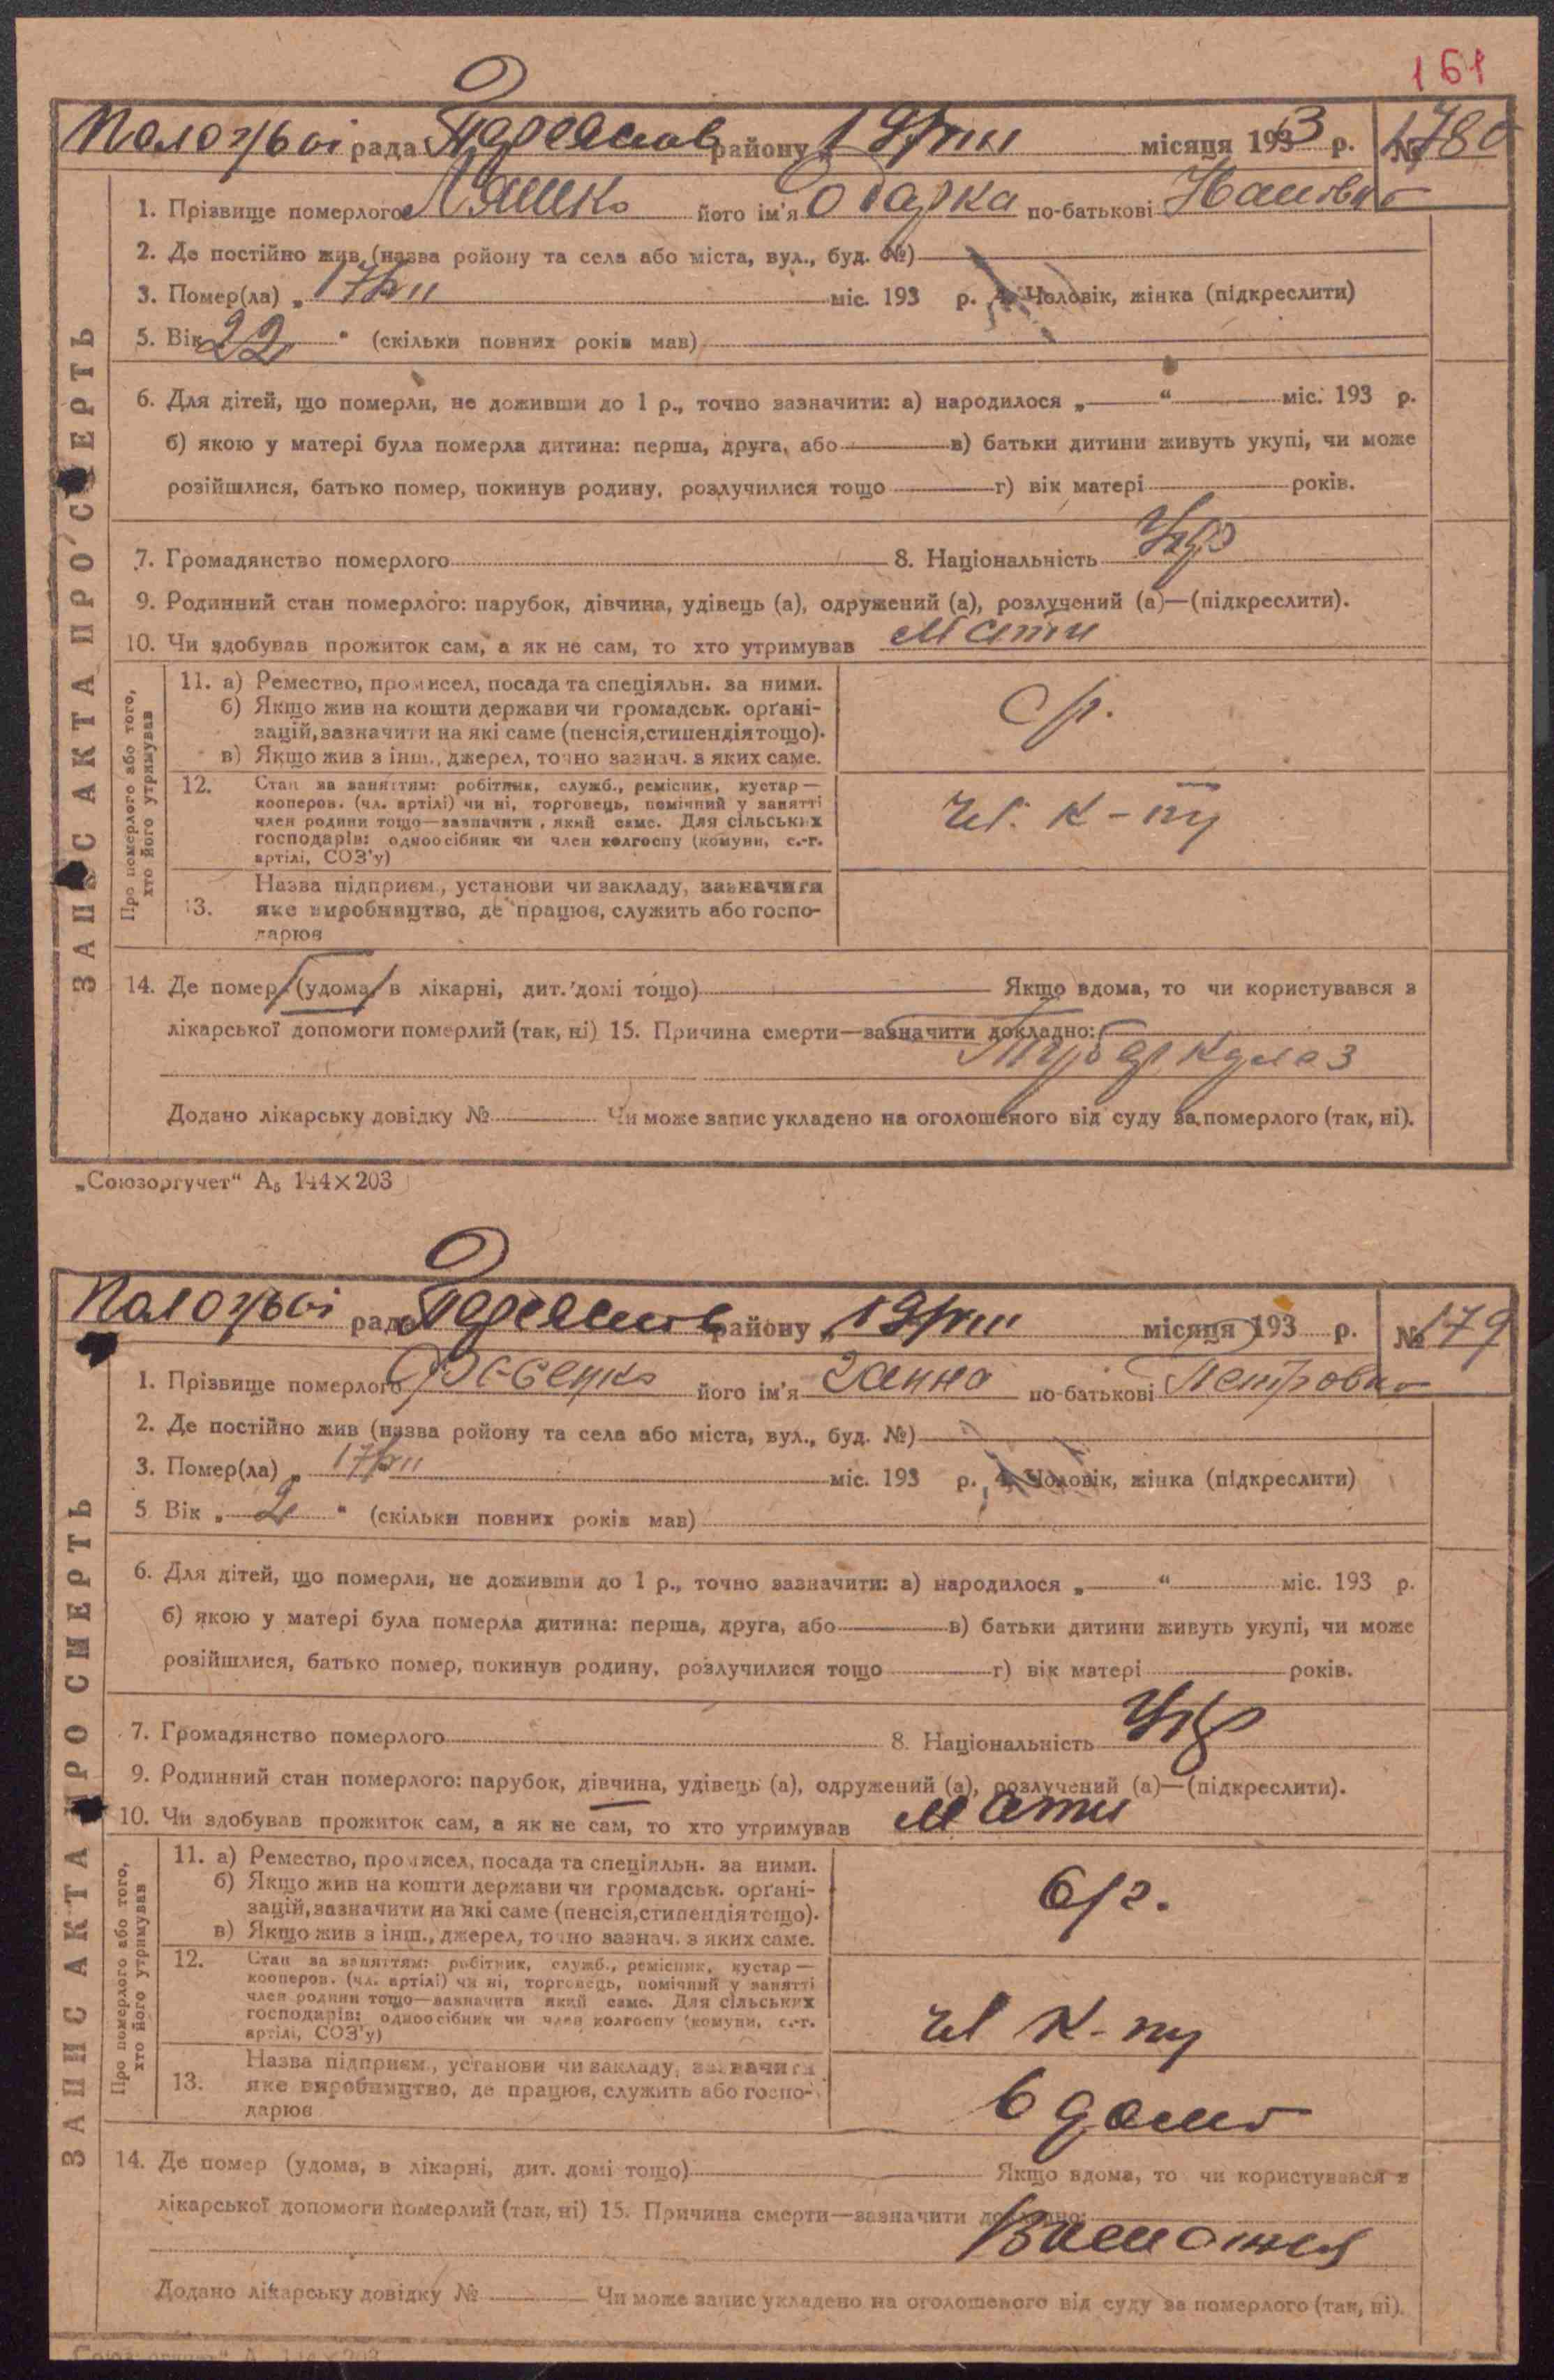 161
рада району 19/VIII місяця 1933 р. № 780
1. Прізвище померлого Ляшко його ім'я Одарка по-батькові Івановна
2. Де постійно жив (назва ройону та села або міста, вул., буд. №)
3. Помер(ла) „ 17/VII міс. 193 р. 4. Чоловік, жінка (підкреслити)
5. Вік 22 " (скільки повних років мав)
6. Для дітей, що померли, не доживши до 1 р., точно зазначити: а) народилося „ “ міс. 193 р.
б) якою у матері була померла дитина: перша, друга, або в) батьки дитини живуть укупі, чи може
розійшлися, батько помер, покинув родину, розлучилися тощо г) вік матері років.
7. Громадянство померлого 8. Національність Укр
9. Родинний стан померлого: парубок, дівчина, удівець (а), одружений (а), розлучений (а)—(підкреслити).
10. Чи здобував прожиток сам, а як не сам, то хто утримував Мати
Про померлого або того, хто його утримував
11. а) Ремество, промисел, посада та спеціяльн. за ними.
б) Якщо жив на кошти держави чи громадськ. орґані-
зацій, зазначити на які саме (пенсія, стипендія тощо).
в) Якщо жив з інш., джерел, точно зазнач. з яких саме.
12. Стан за заняттям: робітник, служб., ремісник, кустар—
кооперов. (чл. артілі) чи ні, торговець, помічний у занятті
член родини тощо—зазначити, який саме. Для сільських
господарів: одноосібник чи член колгоспу (комуни, с.-г.
артілі, СОЗ'у)
чл. к-пу
13. Назва підприєм., установи чи закладу, зазначити
яке виробництво, де працює, служить або госпо-
дарює
14. Де помер (удома, в лікарні, дит. домі тощо) Якщо вдома, то чи користувався з
лікарської допомоги померлий (так, ні) 15. Причина смерти—зазначити докладно:
Туберкульоз
Додано лікарську довідку № Чи може запис укладено на оголошеного від суду за померлого (так, ні).
ЗАПИС АКТА ПРО СМЕРТЬ
„Союзоргучет“ А₅ 144×203
рада району „ 19/VIII місяця 193 р. № 179
1. Прізвище померлого його ім'я Ганна по-батькові Петровна
2. Де постійно жив (назва ройону та села або міста, вул., буд. №)
3. Помер(ла) „ 17/VII міс. 193 р. 4. Чоловік, жінка (підкреслити)
5 Вік „ 2 " (скільки повних років мав)
6. Для дітей, що померли, не доживши до 1 р., точно зазначити: а) народилося „ “ міс. 193 р.
б) якою у матері була померла дитина: перша, друга, або в) батьки дитини живуть укупі, чи може
розійшлися, батько помер, покинув родину, розлучилися тощо г) вік матері років.
7. Громадянство померлого 8. Національність Укр
9. Родинний стан померлого: парубок, дівчина, удівець (а), одружений (а), розлучений (а)—(підкреслити).
10. Чи здобував прожиток сам, а як не сам, то хто утримував Мати
Про померлого або того, хто його утримував
11. а) Ремество, промисел, посада та спеціяльн. за ними.
б) Якщо жив на кошти держави чи громадськ. орґані-
зацій, зазначити на які саме (пенсія, стипендія тощо).
в) Якщо жив з інш., джерел, точно зазнач. з яких саме.
12. Стан за заняттям: робітник, служб., ремісник, кустар—
кооперов. (чл. артілі) чи ні, торговець, помічний у занятті
член родини тощо—зазначити який саме. Для сільських
господарів: одноосібник чи член колгоспу (комуни, с.-г.
артілі, СОЗ'у)
чл к-пу
13. Назва підприєм., установи чи закладу, зазначити
яке виробництво, де працює, служить або госпо-
дарює
14. Де помер (удома, в лікарні, дит. домі тощо) Якщо вдома, то чи користувався з
лікарської допомоги померлий (так, ні) 15. Причина смерти—зазначити докладно:
Додано лікарську довідку № Чи може запис укладено на оголошеного від суду за померлого (так, ні).
ЗАПИС АКТА ПРО СМЕРТЬ